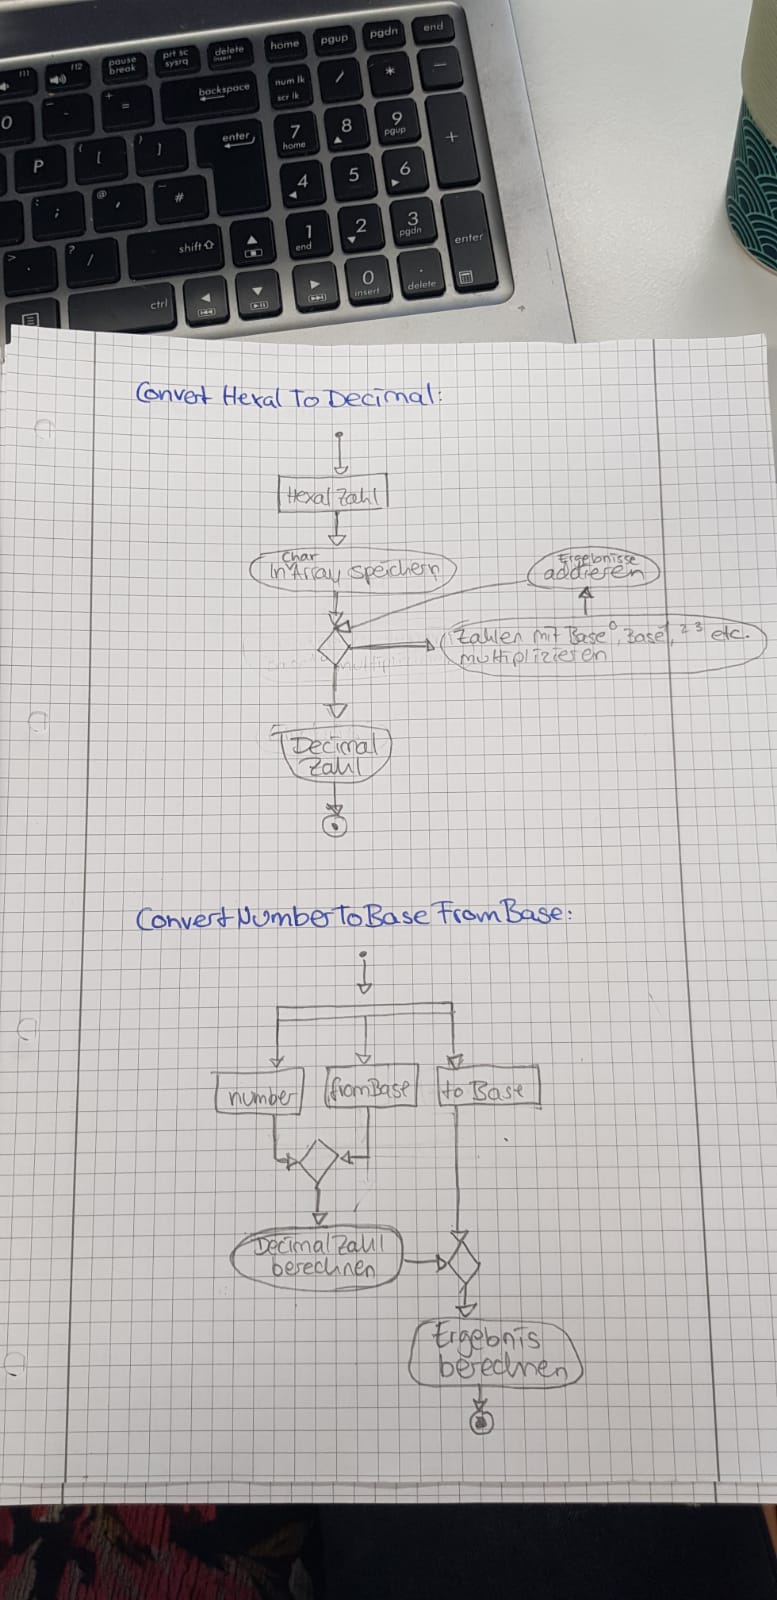 f11
f12
pause
break
prt sc
sysrq
delete
insert
home
pgup
pgdn
end
0
-
+
=
backspace
num lk
scr lk
/
*
-
P
{
[
}
]
enter
7
home
8
9
pgup
+
:
;
@
,
~
#
4
5
6
>
.
?
/
shift
1
end
2
3
pgdn
enter
ctrl
0
insert
.
delete
Convert Hexal To Decimal:
Hexal Zahl
Char
In Array speichern
Ergebnisse
addieren
Zahlen mit Base⁰, Base¹, ² ³ etc.
multiplizieren
Decimal
Zahl
ConvertNumberToBaseFromBase:
number
fromBase
to Base
DecimalZahl
berechnen
Ergebnis
berechnen